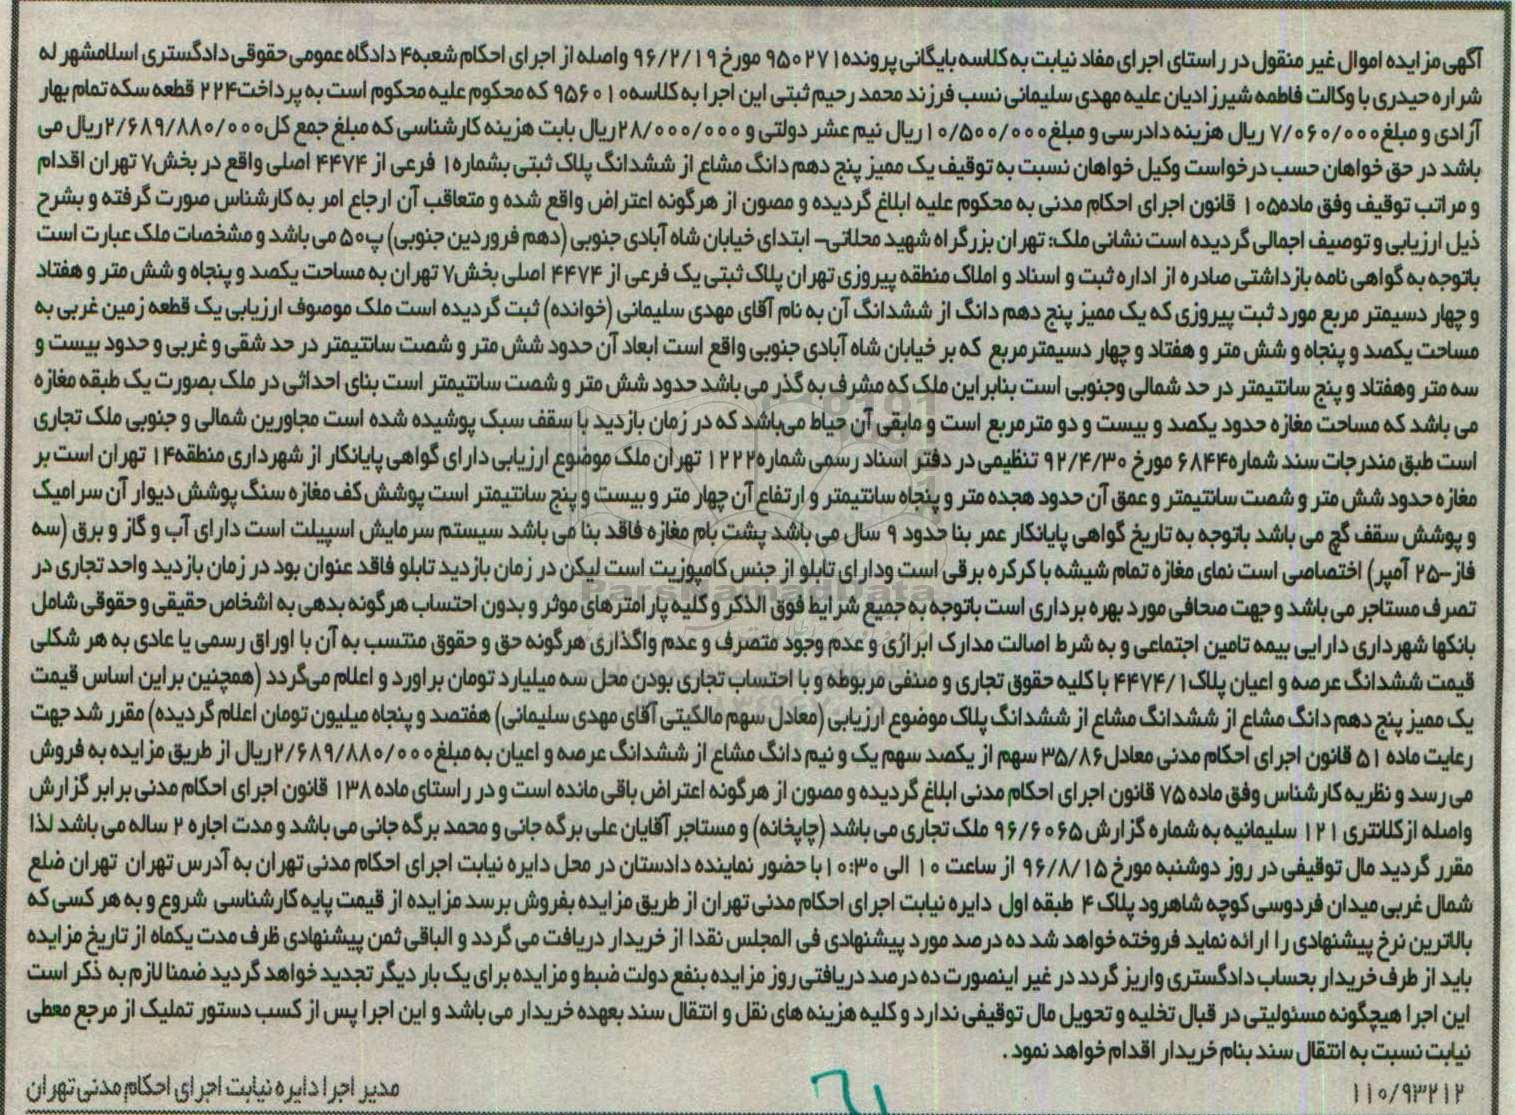 آگهی مزایده اموال غیر منقول در راستای اجرای مفاد نیابت به کلاسه بایگانی پرونده ۹۵۰۲۷۱ مورخ ۹۶/۲/۱۹ واصله از اجرای احکام شعبه۴ دادگاه عمومی حقوقی دادگستری اسلامشهر له
شراره حیدری با وکالت فاطمه شیرزادیان علیه مهدی سلیمانی نسب فرزند محمد رحیم ثبتی این اجرا به کلاسه ۹۵۶۰۱۰ که محکوم علیه محکوم است به پرداخت ۲۲۴ قطعه سکه تمام بهار
آزادی و مبلغ ۷/۰۶۰/۰۰۰ ریال هزینه دادرسی و مبلغ ۱۰/۵۰۰/۰۰۰ ریال نیم عشر دولتی و ۲۸/۰۰۰/۰۰۰ ریال بابت هزینه کارشناسی که مبلغ جمع کل ۲/۶۸۹/۸۸۰/۰۰۰ ریال می
باشد در حق خواهان حسب درخواست وکیل خواهان نسبت به توقیف یک ممیز پنج دهم دانگ مشاع از ششدانگ پلاک ثبتی بشماره ۱ فرعی از ۴۴۷۴ اصلی واقع در بخش۷ تهران اقدام
و مراتب توقیف وفق ماده۱۰۵ قانون اجرای احکام مدنی به محکوم علیه ابلاغ گردیده و مصون از هرگونه اعتراض واقع شده و متعاقب آن ارجاع امر به کارشناس صورت گرفته و بشرح
ذیل ارزیابی و توصیف اجمالی گردیده است نشانی ملک: تهران بزرگراه شهید محلاتی- ابتدای خیابان شاه آبادی جنوبی (دهم فروردین جنوبی) پ۵۰ می باشد و مشخصات ملک عبارت است
باتوجه به گواهی نامه بازداشتی صادره از اداره ثبت و اسناد و املاک منطقه پیروزی تهران پلاک ثبتی یک فرعی از ۴۴۷۴ اصلی بخش۷ تهران به مساحت یکصد و پنجاه و شش متر و هفتاد
و چهار دسیمتر مربع مورد ثبت پیروزی که یک ممیز پنج دهم دانگ از ششدانگ آن به نام آقای مهدی سلیمانی (خوانده) ثبت گردیده است ملک موصوف ارزیابی یک قطعه زمین غربی به
مساحت یکصد و پنجاه و شش متر و هفتاد و چهار دسیمترمربع که بر خیابان شاه آبادی جنوبی واقع است ابعاد آن حدود شش متر و شصت سانتیمتر در حد شقی و غربی و حدود بیست و
سه متر وهفتاد و پنج سانتیمتر در حد شمالی وجنوبی است بنابراین ملک که مشرف به گذر می باشد حدود شش متر و شصت سانتیمتر است بنای احداثی در ملک بصورت یک طبقه مغازه
می باشد که مساحت مغازه حدود یکصد و بیست و دو مترمربع است و مابقی آن حیاط می‌باشد که در زمان بازدید با سقف سبک پوشیده شده است مجاورین شمالی و جنوبی ملک تجاری
است طبق مندرجات سند شماره ۶۸۴۴ مورخ ۹۲/۴/۳۰ تنظیمی در دفتر اسناد رسمی شماره ۱۲۲۲ تهران ملک موضوع ارزیابی دارای گواهی پایانکار از شهرداری منطقه ۱۴ تهران است بر
مغازه حدود شش متر و شصت سانتیمتر و عمق آن حدود هجده متر و پنجاه سانتیمتر و ارتفاع آن چهار متر و بیست و پنج سانتیمتر است پوشش کف مغازه سنگ پوشش دیوار آن سرامیک
و پوشش سقف گچ می باشد باتوجه به تاریخ گواهی پایانکار عمر بنا حدود ۹ سال می باشد پشت بام مغازه فاقد بنا می باشد سیستم سرمایش اسپیلت است دارای آب و گاز و برق (سه
فاز-۲۵ آمپر) اختصاصی است نمای مغازه تمام شیشه با کرکره برقی است ودارای تابلو از جنس کامپوزیت است لیکن در زمان بازدید تابلو فاقد عنوان بود در زمان بازدید واحد تجاری در
تصرف مستاجر می باشد و جهت صحافی مورد بهره برداری است باتوجه به جمیع شرایط فوق الذکر و کلیه پارامترهای موثر و بدون احتساب هرگونه بدهی به اشخاص حقیقی و حقوقی شامل
بانکها شهرداری دارایی بیمه تامین اجتماعی و به شرط اصالت مدارک ابرازی و عدم وجود متصرف و عدم واگذاری هرگونه حق و حقوق منتسب به آن با اوراق رسمی یا عادی به هر شکلی
قیمت ششدانگ عرصه و اعیان پلاک ۴۴۷۴/۱ با کلیه حقوق تجاری و صنفی مربوطه و با احتساب تجاری بودن محل سه میلیارد تومان براورد و اعلام می‌گردد (همچنین براین اساس قیمت
یک ممیز پنج دهم دانگ مشاع از ششدانگ مشاع از ششدانگ پلاک موضوع ارزیابی (معادل سهم مالکیتی آقای مهدی سلیمانی) هفتصد و پنجاه میلیون تومان اعلام گردیده) مقرر شد جهت
رعایت ماده ۵۱ قانون اجرای احکام مدنی معادل ۳۵/۸۶ سهم از یکصد سهم یک و نیم دانگ مشاع از ششدانگ عرصه و اعیان به مبلغ ۲/۶۸۹/۸۸۰/۰۰۰ ریال از طریق مزایده به فروش
می رسد و نظریه کارشناس وفق ماده ۷۵ قانون اجرای احکام مدنی ابلاغ گردیده و مصون از هرگونه اعتراض باقی مانده است و در راستای ماده ۱۳۸ قانون اجرای احکام مدنی برابر گزارش
واصله ازکلانتری ۱۲۱ سلیمانیه به شماره گزارش ۹۶/۶۰۶۵ ملک تجاری می باشد (چاپخانه) و مستاجر آقایان علی برگه جانی و محمد برگه جانی می باشد و مدت اجاره ۲ ساله می باشد لذا
مقرر گردید مال توقیفی در روز دوشنبه مورخ ۹۶/۸/۱۵ از ساعت ۱۰ الی ۱۰:۳۰ با حضور نماینده دادستان در محل دایره نیابت اجرای احکام مدنی تهران به آدرس تهران تهران ضلع
شمال غربی میدان فردوسی کوچه شاهرود پلاک ۴ طبقه اول دایره نیابت اجرای احکام مدنی تهران از طریق مزایده بفروش برسد مزایده از قیمت پایه کارشناسی شروع و به هر کسی که
بالاترین نرخ پیشنهادی را ارائه نماید فروخته خواهد شد ده درصد مورد پیشنهادی فی المجلس نقدا از خریدار دریافت می گردد و الباقی ثمن پیشنهادی ظرف مدت یکماه از تاریخ مزایده
باید از طرف خریدار بحساب دادگستری واریز گردد در غیر اینصورت ده درصد دریافتی روز مزایده بنفع دولت ضبط و مزایده برای یک بار دیگر تجدید خواهد گردید ضمنا لازم به ذکر است
این اجرا هیچگونه مسئولیتی در قبال تخلیه و تحویل مال توقیفی ندارد و کلیه هزینه های نقل و انتقال سند بعهده خریدار می باشد و این اجرا پس از کسب دستور تملیک از مرجع معطی
نیابت نسبت به انتقال سند بنام خریدار اقدام خواهد نمود.
۱۱۰/۹۳۲۱۲
مدیر اجرا دایره نیابت اجرای احکام مدنی تهران